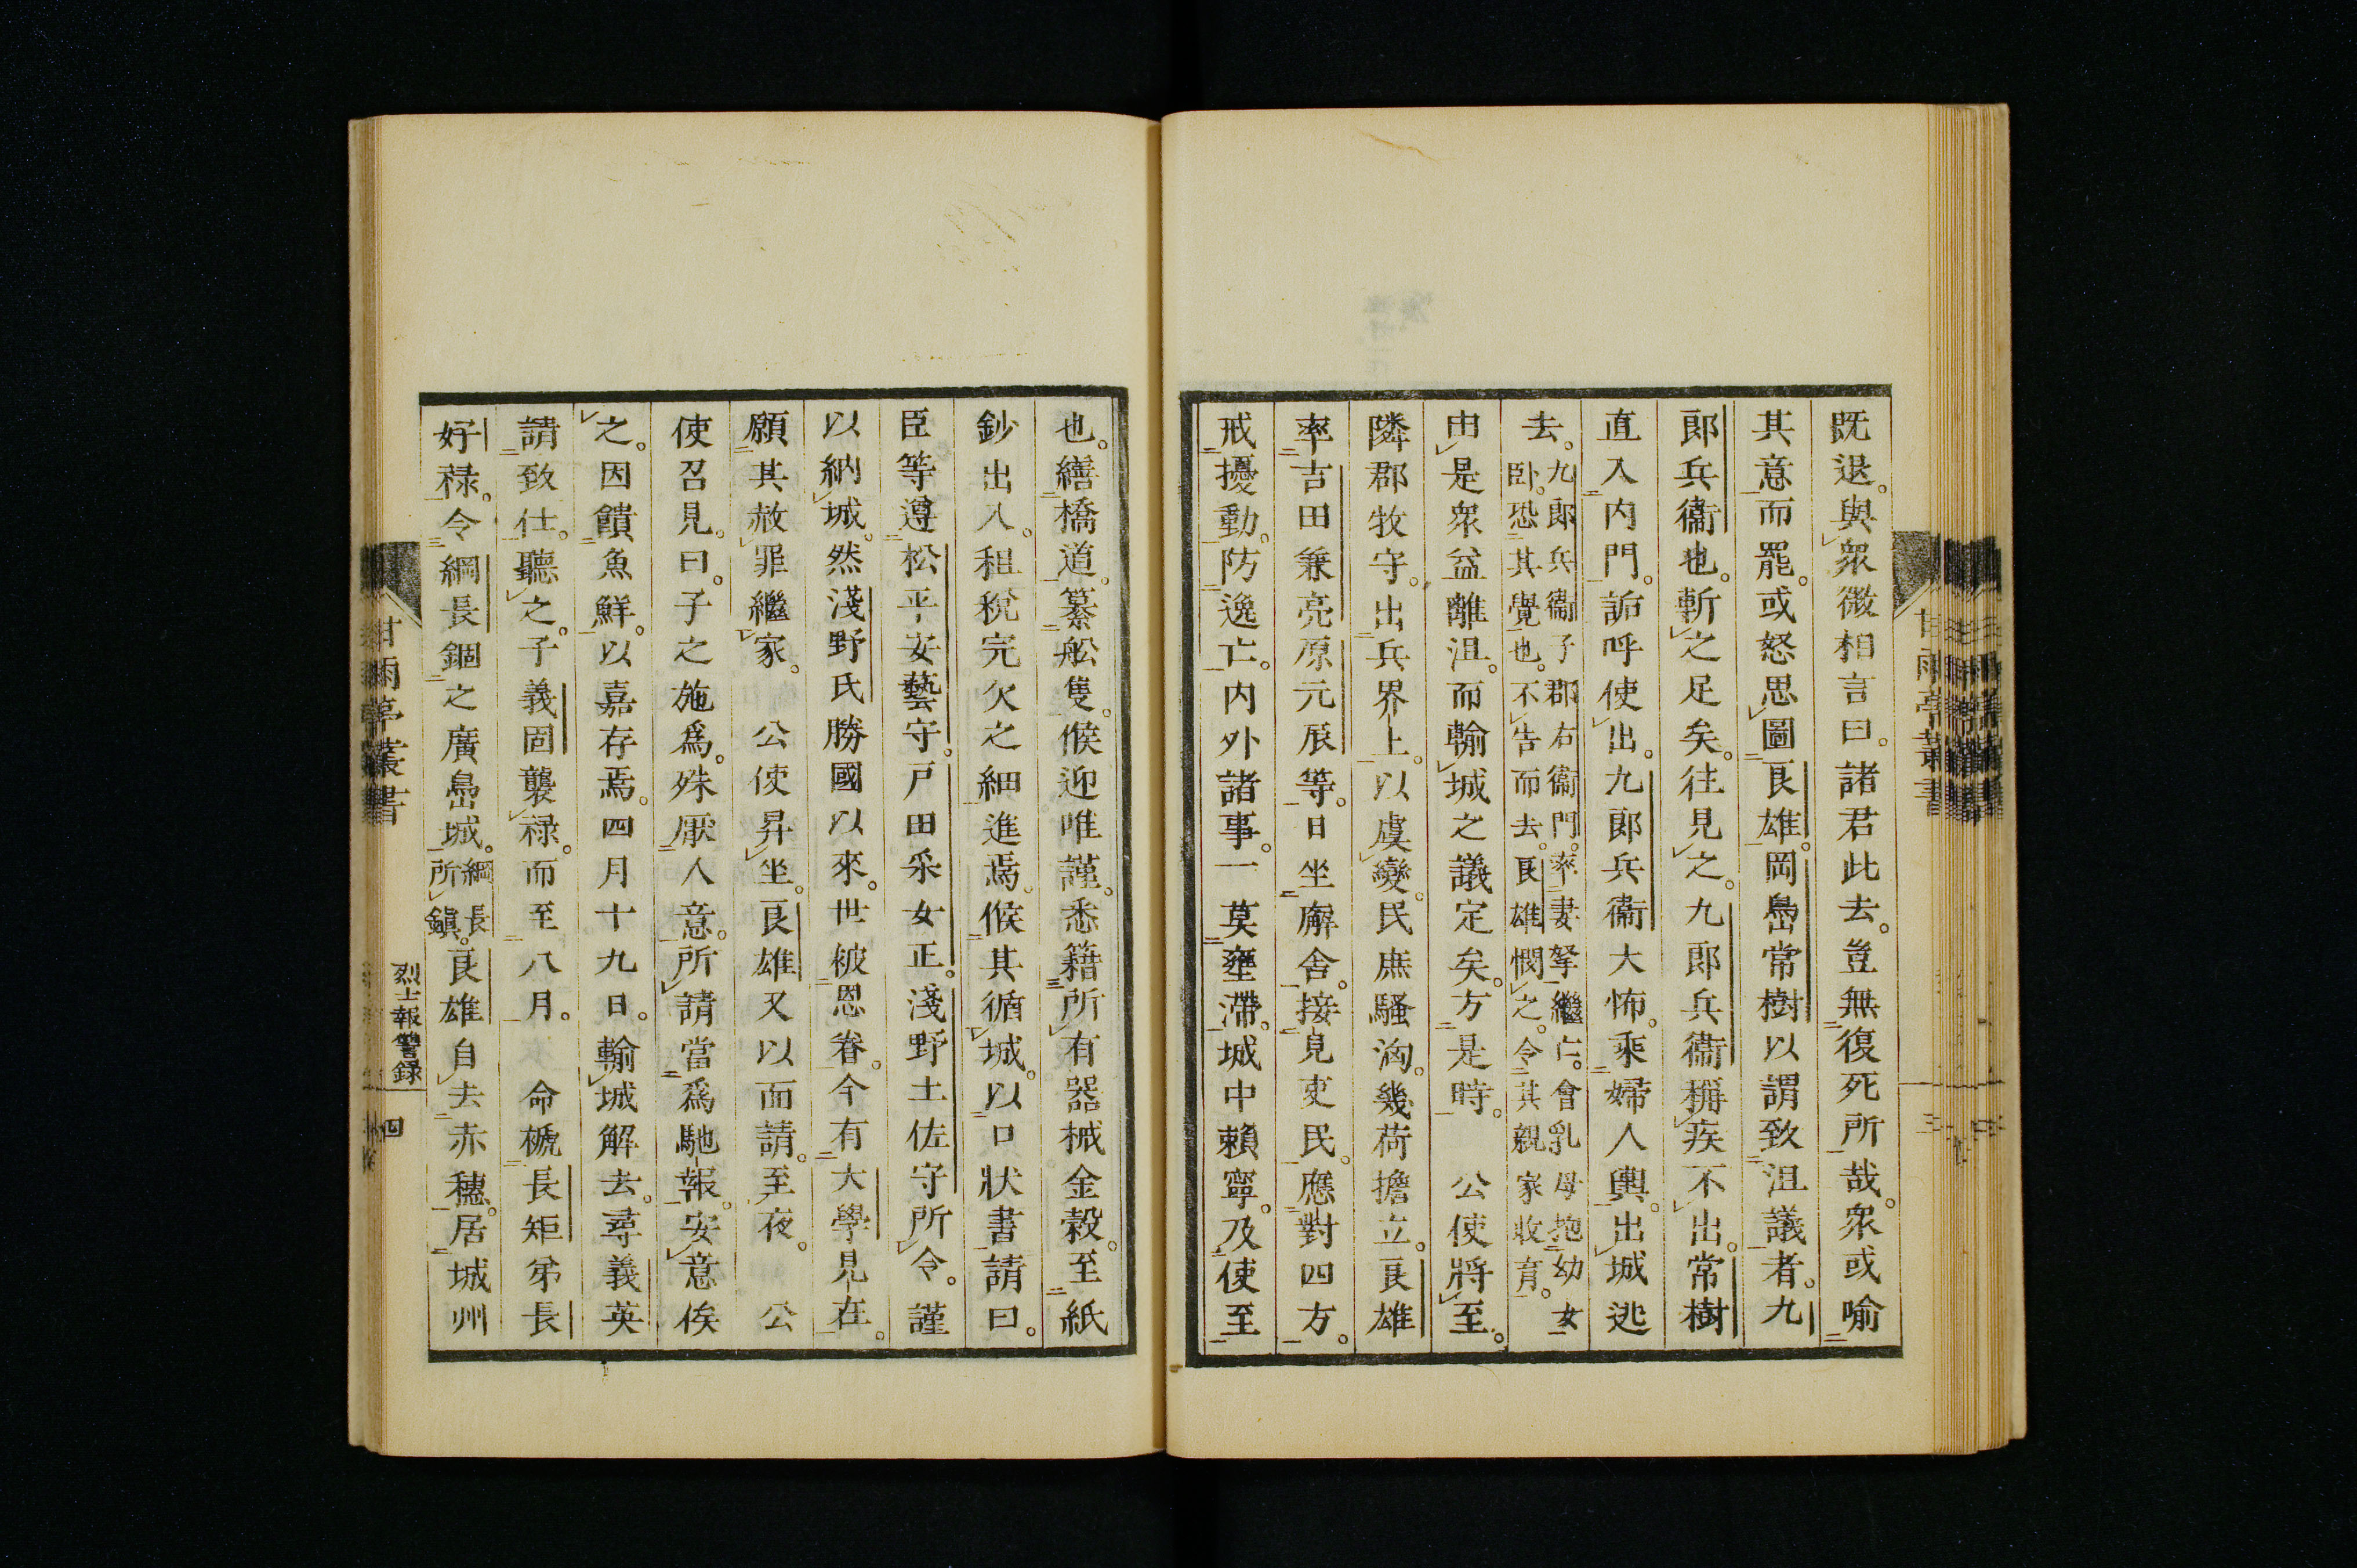 既退。與衆微相言曰。諸君此去。豈無復死所哉。衆或喻
其意而罷。或怒思圖良雄。岡嶋常樹以謂致沮議者。九
郎兵衞也。斬之足矣。往見之。九郎兵衞稱疾不出。常樹
直入内門。詬呼使出。九郎兵衞大怖。乘婦人輿。出城逃
去。九郎兵衞子郡右衞門。率妻孥繼亡。會乳母抱幼女
臥。恐其覺也。不告而去。良雄憫之。令其親家收育。
由是衆益離沮。而輸城之議定矣。方是時。公使將至。
隣郡牧守。出兵界上。以虞變。民庶騷洶。幾荷擔立。良雄
率吉田兼亮原元辰等。日坐廨舎。接見吏民。應對四方。
戒擾動。防逸亡。内外諸事。一莫壅滯。城中頼寧。及使至
也。繕橋道。纂舩隻。候迎唯謹。悉籍所有器械金穀。至紙
鈔出入。租稅完欠之細進焉。候其循城。以口狀書請曰。
臣等遵松平安藝守。戸田采女正。淺野土佐守所令。謹
以納城。然淺野氏勝國以來。世被恩眷。今有大學見在。
願其赦罪繼家。公使昇坐。良雄又以面請。至夜。公
使召見。曰。子之施爲。殊厭人意。所請當爲馳報。安意俟
之。因饋魚鮮。以嘉存焉。四月十九日。輸城解去。尋義英
請致仕。聽之。子義固襲祿。而至八月。命褫長矩弟長
好祿。令綱長錮之廣嶋城。綱長所鎭。良雄自去赤穗。居城州
甘雨亭叢書
烈士報讐録
四
甘雨亭叢書